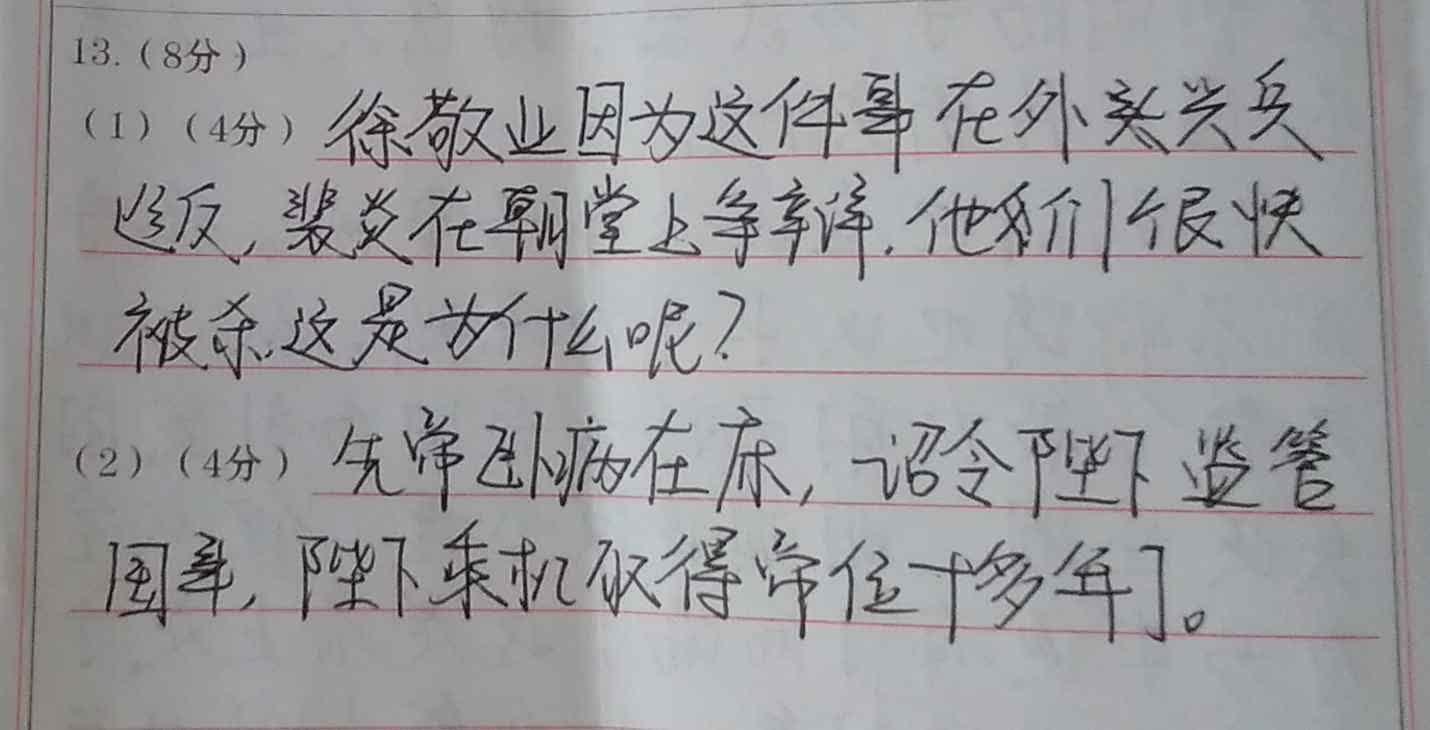 13.（8分）
（1）（4分）徐敬业因为这件事在外头兴兵
造反，裴炎在朝堂上争辩，他们很快
被杀，这是为什么呢？
（2）（4分）先帝卧病在床，诏令陛下监管
国事，陛下乘机取得帝位十多年了。